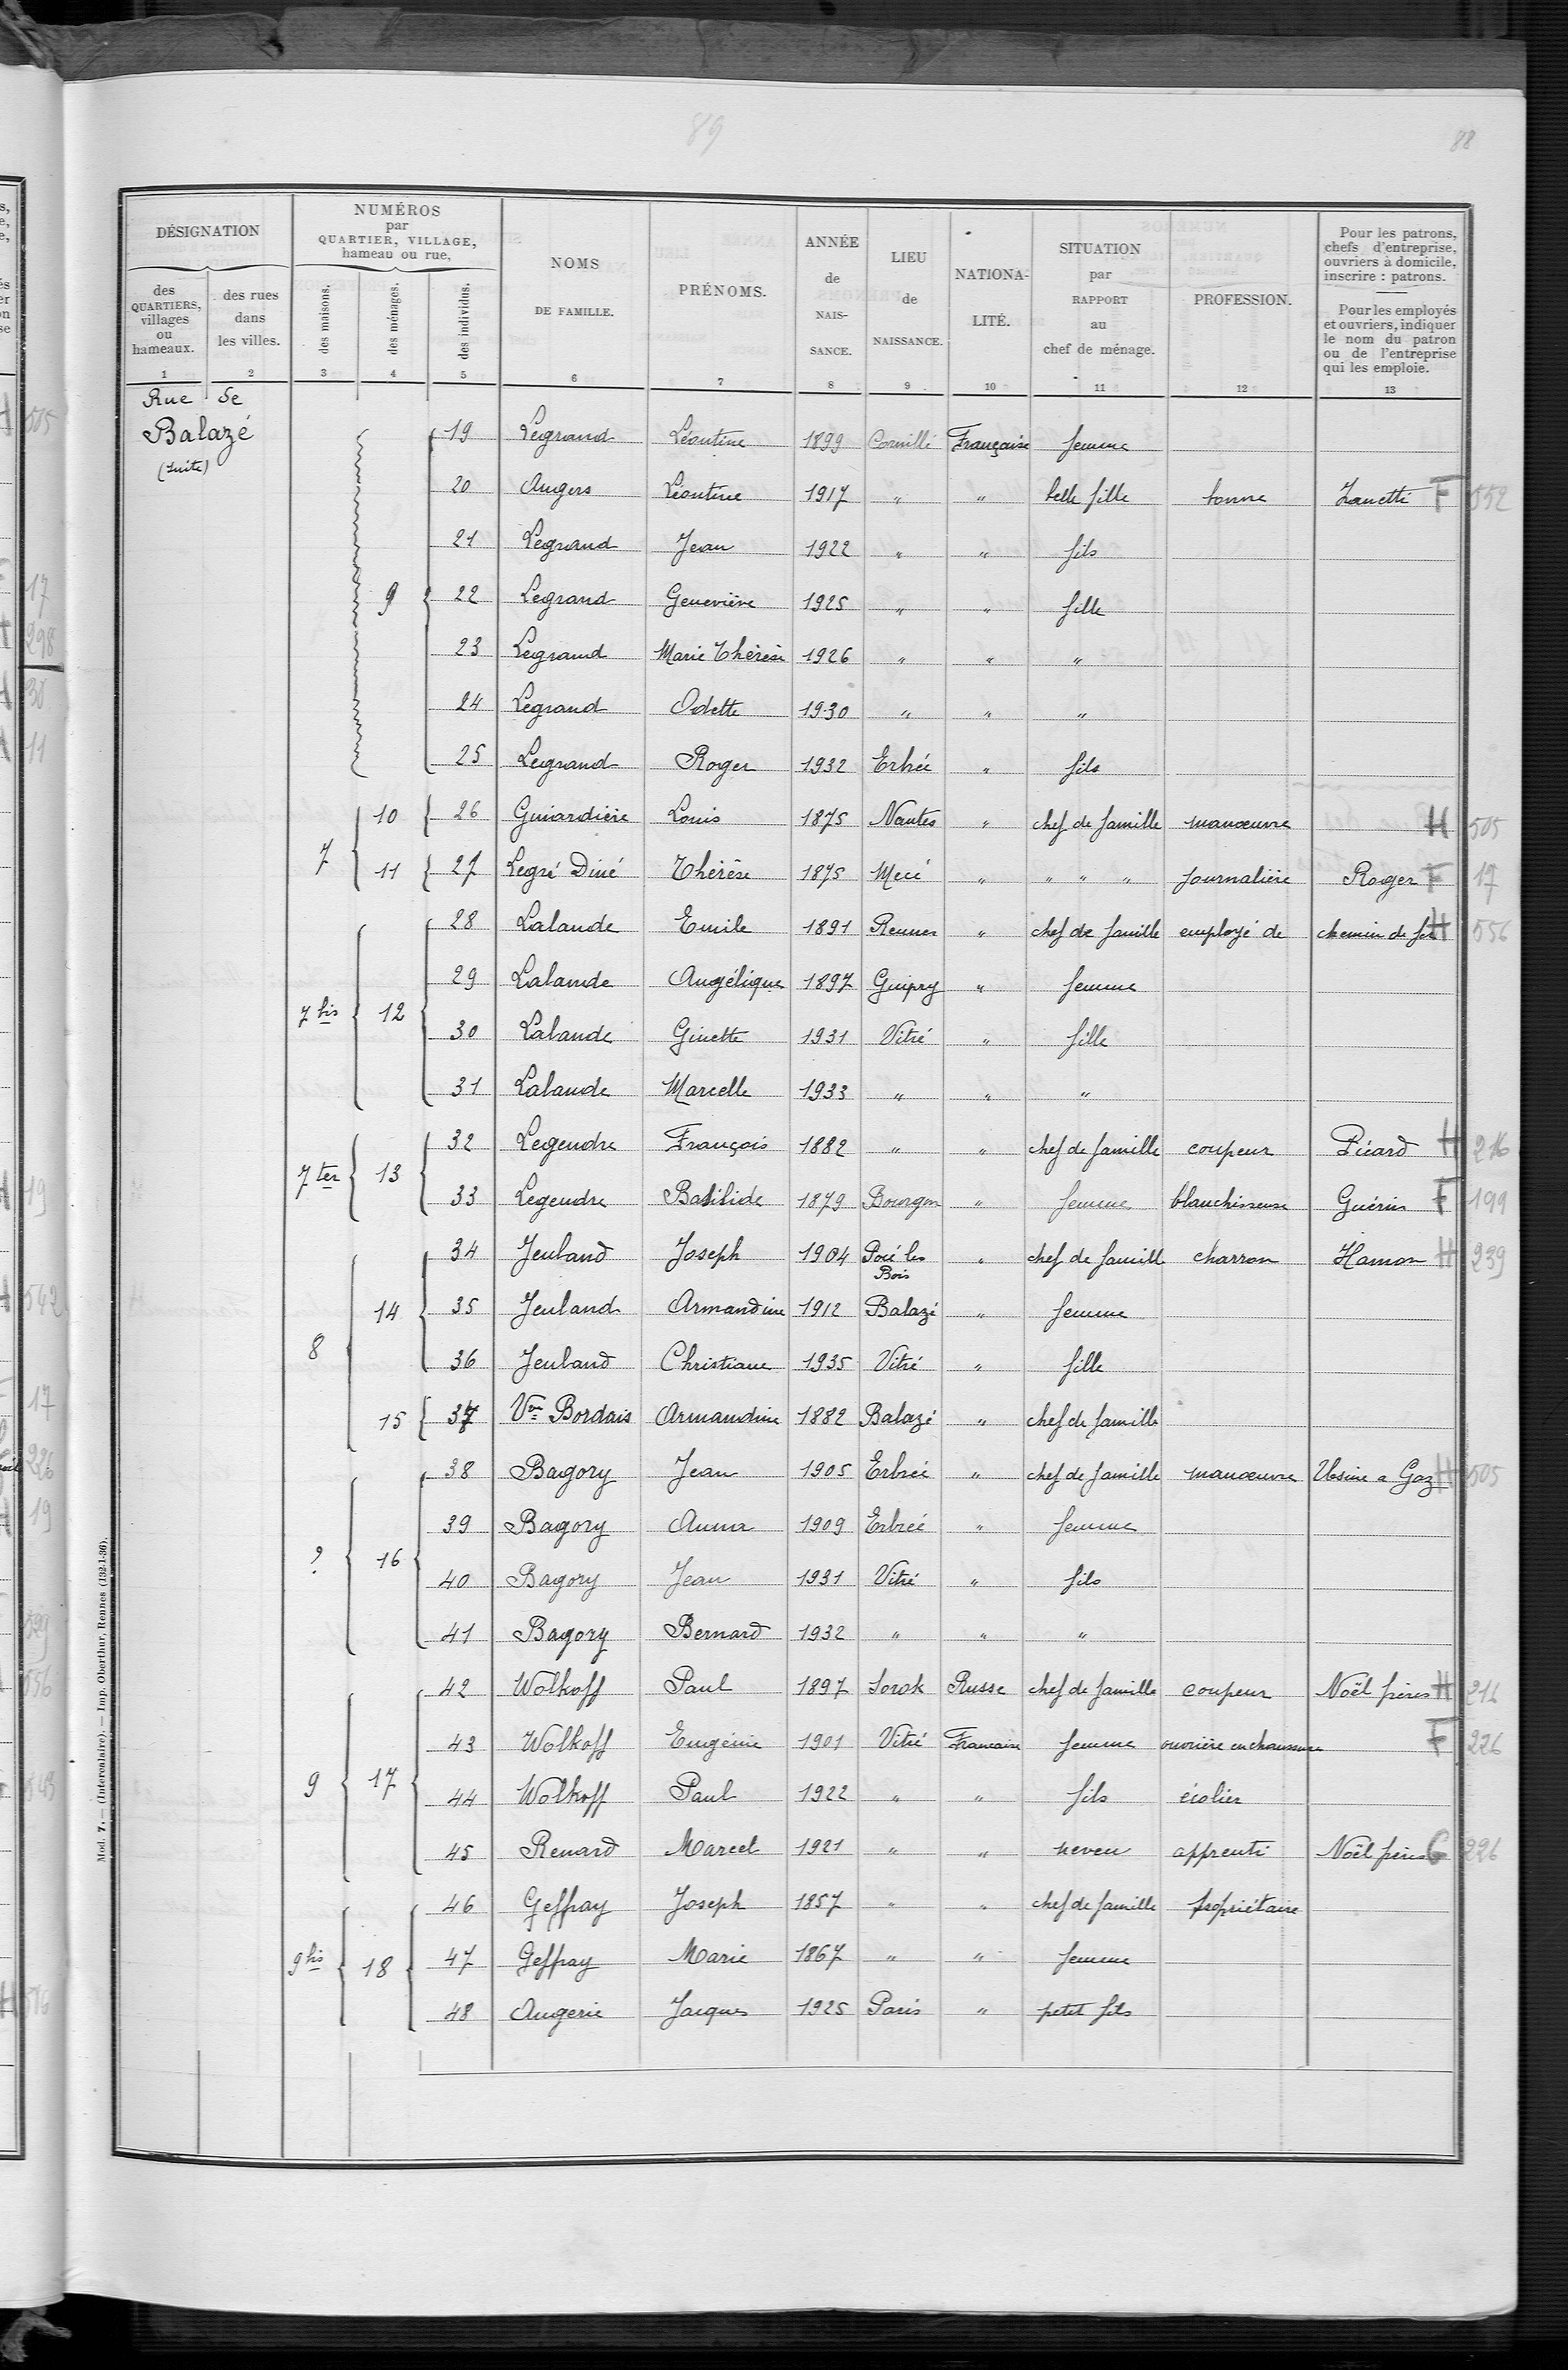 89
88
DÉSIGNATION
NUMÉROS
par
QUARTIER, VILLAGE,
hameau ou rue,
des
QUARTIERS,
villages
ou
hameaux.
des rues
dans
les villes.
des maisons.
des ménages.
des individus.
NOMS
DE FAMILLE.
PRÉNOMS.
ANNÉE
de
NAIS-
SANCE.
LIEU
de
NAISSANCE.
NATIONA-
LITÉ.
SITUATION
par
RAPPORT
au
chef de ménage.
PROFESSION.
Pour les patrons,
chefs d'entreprise,
ouvriers à domicile,
inscrire : patrons.
Pour les employés
et ouvriers, indiquer
le nom du patron
ou de l'entreprise
qui les emploie.
1 2 3 4 5 6 7 8 9 10 11 12 13
Rue de
Balazé
(suite)
19 Legrand Léontine 1899 Cornillé Française femme
20 Angers Léontine 1917 " " belle fille bonne Zanetti F 552
21 Legrand Jean 1922 " " fils
9 22 Legrand Geneviève 1925 " " fille
23 Legrand Marie Thérèse 1926 " " "
24 Legrand Odette 1930 " " "
25 Legrand Roger 1932 Erbrée " fils
10 26 Guiardière Louis 1875 Nantes " chef de famille manœuvre H 505
7 11 27 Legré Diné Thérèse 1875 Mecé " " " " journalière Roger F 17
28 Lalande Emile 1891 Rennes " chef de famille employé de chemin de fer H 556
29 Lalande Angélique 1897 Guipry " femme
7 bis 12
30 Lalande Ginette 1931 Vitré " fille
31 Lalande Marcelle 1933 " " "
32 Legendre François 1882 " " chef de famille coupeur Picard H 216
7 ter 13
33 Legendre Basilide 1879 Bourgon " femme blanchisseuse Guérin F 199
34 Jeuland Joseph 1904 Pocé les Bois " chef de famille charron Hamon H 239
14 35 Jeuland Armandine 1912 Balazé " femme
8
36 Jeuland Christiane 1935 Vitré " fille
15 37 Vve Bordais Armandine 1882 Balazé " chef de famille
38 Bagory Jean 1905 Erbrée " chef de famille manœuvre Usine a Gaz H 505
39 Bagory Anna 1909 Erbrée " femme
? 16
40 Bagory Jean 1931 Vitré " fils
41 Bagory Bernard 1932 " " "
42 Wolkoff Paul 1897 Sorok Russe chef de famille coupeur Noël frères H 216
43 Wolkoff Eugénie 1901 Vitré Francaise femme ouvrière en chaussure F 226
9 17
44 Wolkoff Paul 1922 " " fils écolier
45 Renard Marcel 1921 " " neveu apprenti Noël frères G 226
46 Geffray Joseph 1857 " " chef de famille propriétaire
9 bis 18 47 Geffray Marie 1867 " " femme
48 Angerie Jacques 1925 Paris " petit fils
Mod. 7. — (Intercalaire). — Imp. Oberthur, Rennes (132-1-36).